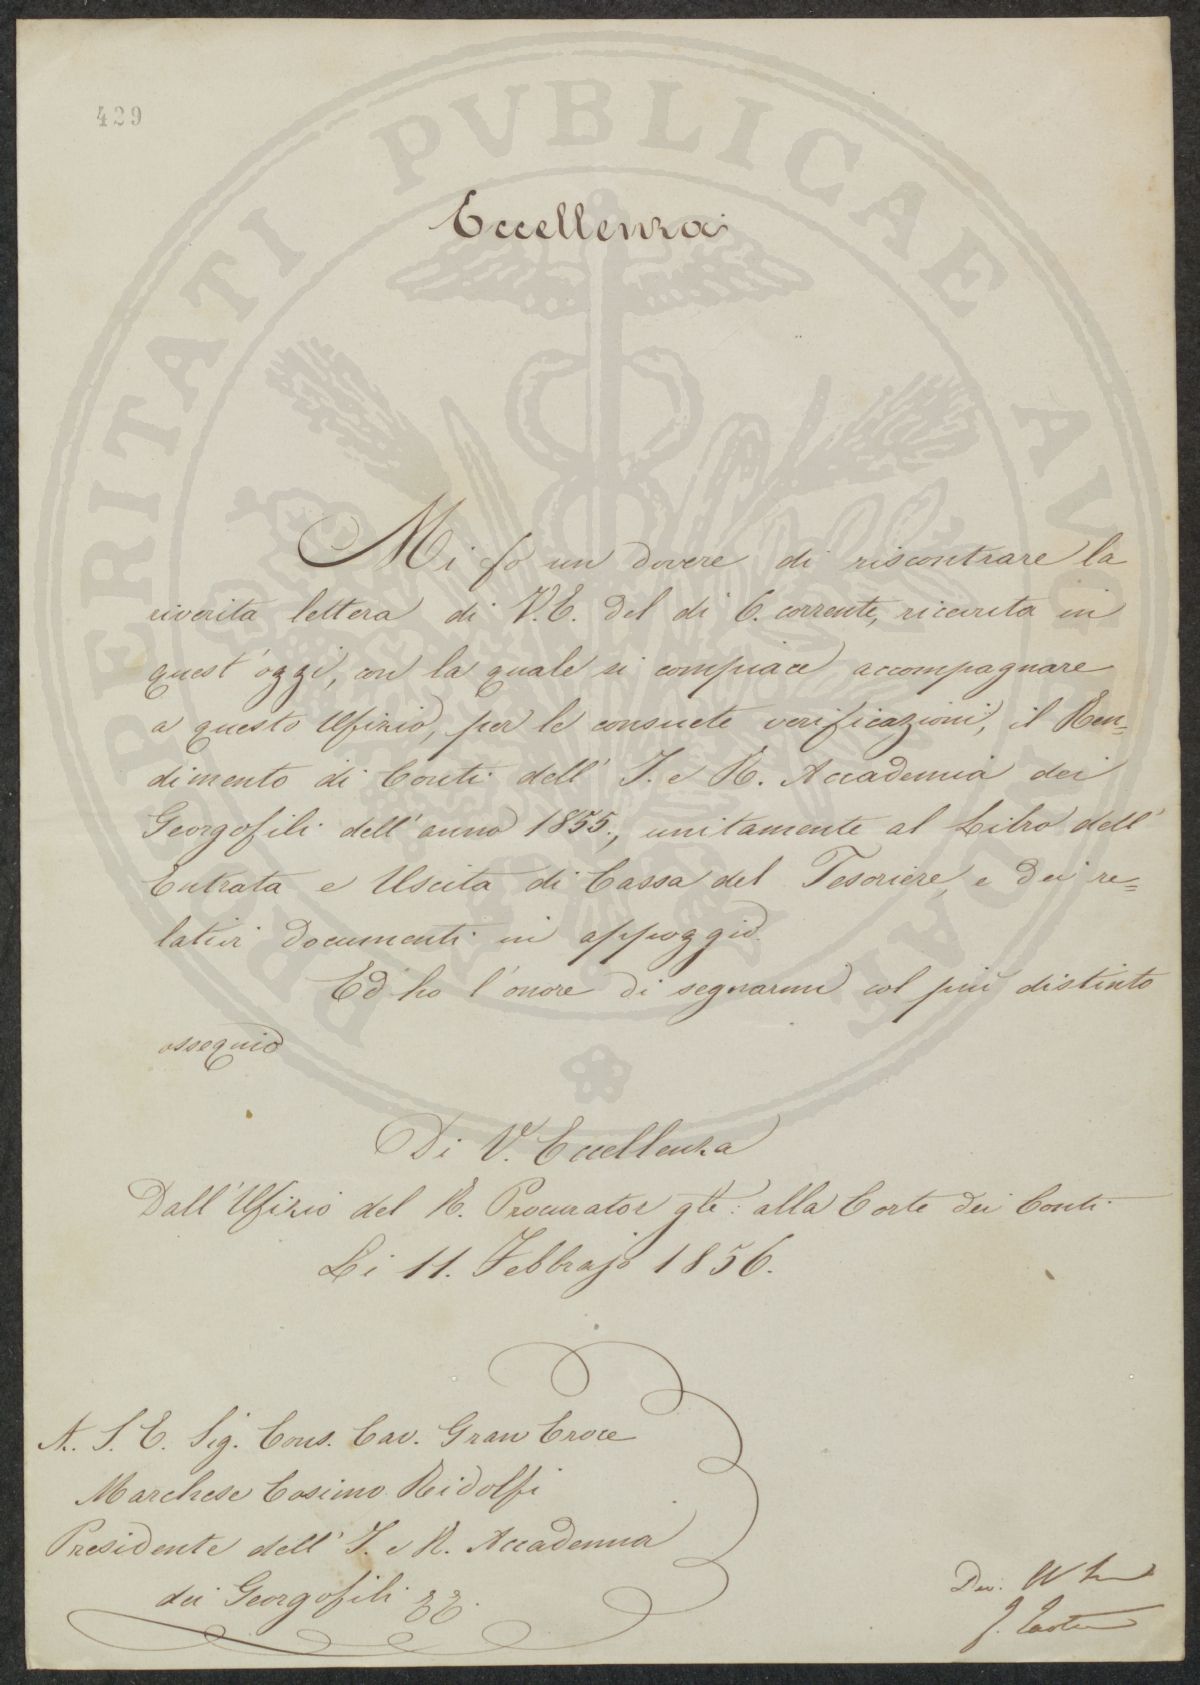 429
PROSPERITATI PVBLICAE AVGENDAE
Eccellenza
Mi fo un dovere di riscontrare la
riverita lettera di V.E. del dì 6. corrente, ricevuta in
quest'oggi, con la quale si compiace accompagnare
a questo Ufizio, per le consuete verificazioni, il Ren=
dimento di Conti dell' I. e R. Accademia dei
Georgofili dell'anno 1855., unitamente al Libro dell'
Entrata e Uscita di Cassa del Tesoriere, e dei re=
lativi documenti in appoggio.
Ed ho l'onore di segnarmi col più distinto
ossequio
Di V. Eccellenza
Dall'Ufizio del R. Procurator gle: alla Corte dei Conti
Li 11. Febbrajo 1856.
A. S. E. Sig. Cons. Cav. Gran Croce
Marchese Cosimo Ridolfi
Presidente dell' I. e R. Accademia
dei Georgofili
Dev.